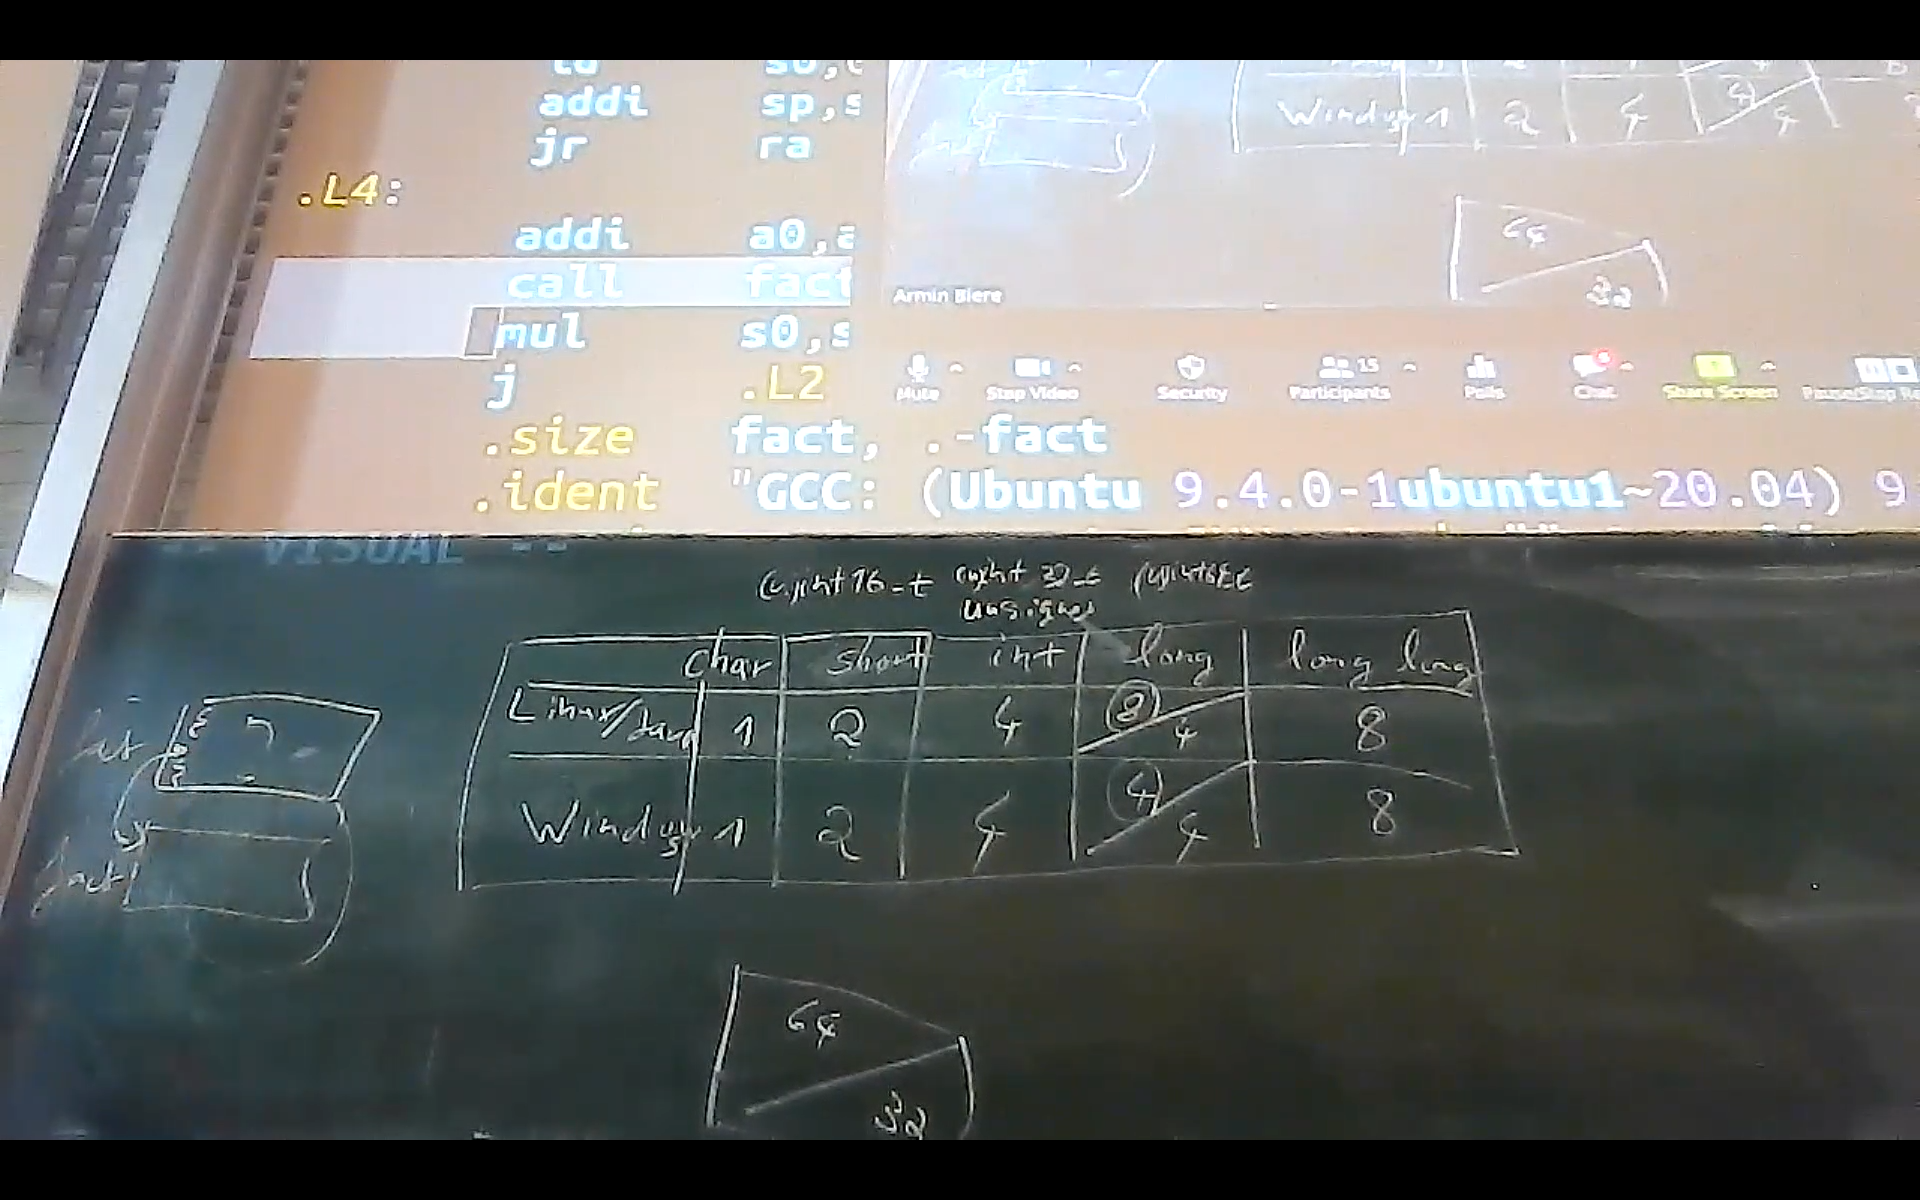 addi sp,s
jr ra
.L4:
addi a0,a
call fact
mul s0,s
j .L2
.size fact, .-fact
.ident "GCC: (Ubuntu 9.4.0-1ubuntu1~20.04) 9
-- VISUAL --
Windows 1 2 4 4 4
64
32
Armin Biere
Mute Stop Video Security Participants 15 Polls Chat Share Screen Pause/Stop Re
(u)int16_t (u)int32_t (u)int64_t
unsigned
char short int long long long
Linux/ 1 2 4 8 4 8
Windows 1 2 4 4 4 8
fact
64
32